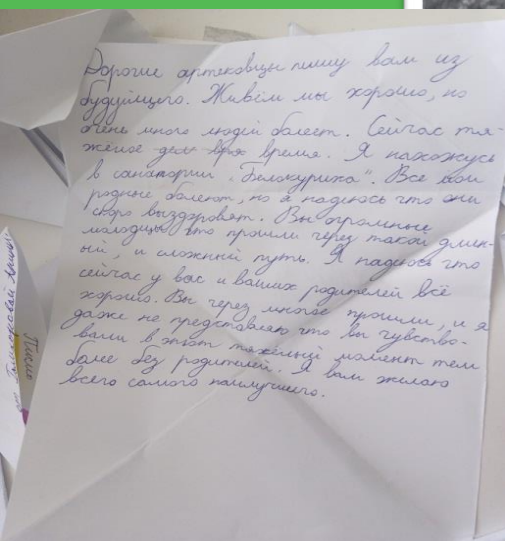 Дорогие артековцы пишу вам из
будуйщего. Живём мы хорошо, но
очень много людей болеет. Сейчас тя-
жёлое время. Я нахожусь
в санатории „Белокуриха". Все мои
родные болеют, но я надеюсь что они
скоро выздоровят. Вы огромные
молодцы что прошли через такой длин-
ный, и сложный путь. Я надеюсь что
сейчас у вас и ваших родителей всё
хорошо. Вы через многое прошли, и я
даже не представляю что вы чувство-
вали в этот тяжёлый момент тем
боле без родителей. Я вам желаю
всего самого наилучшего.
Письмо